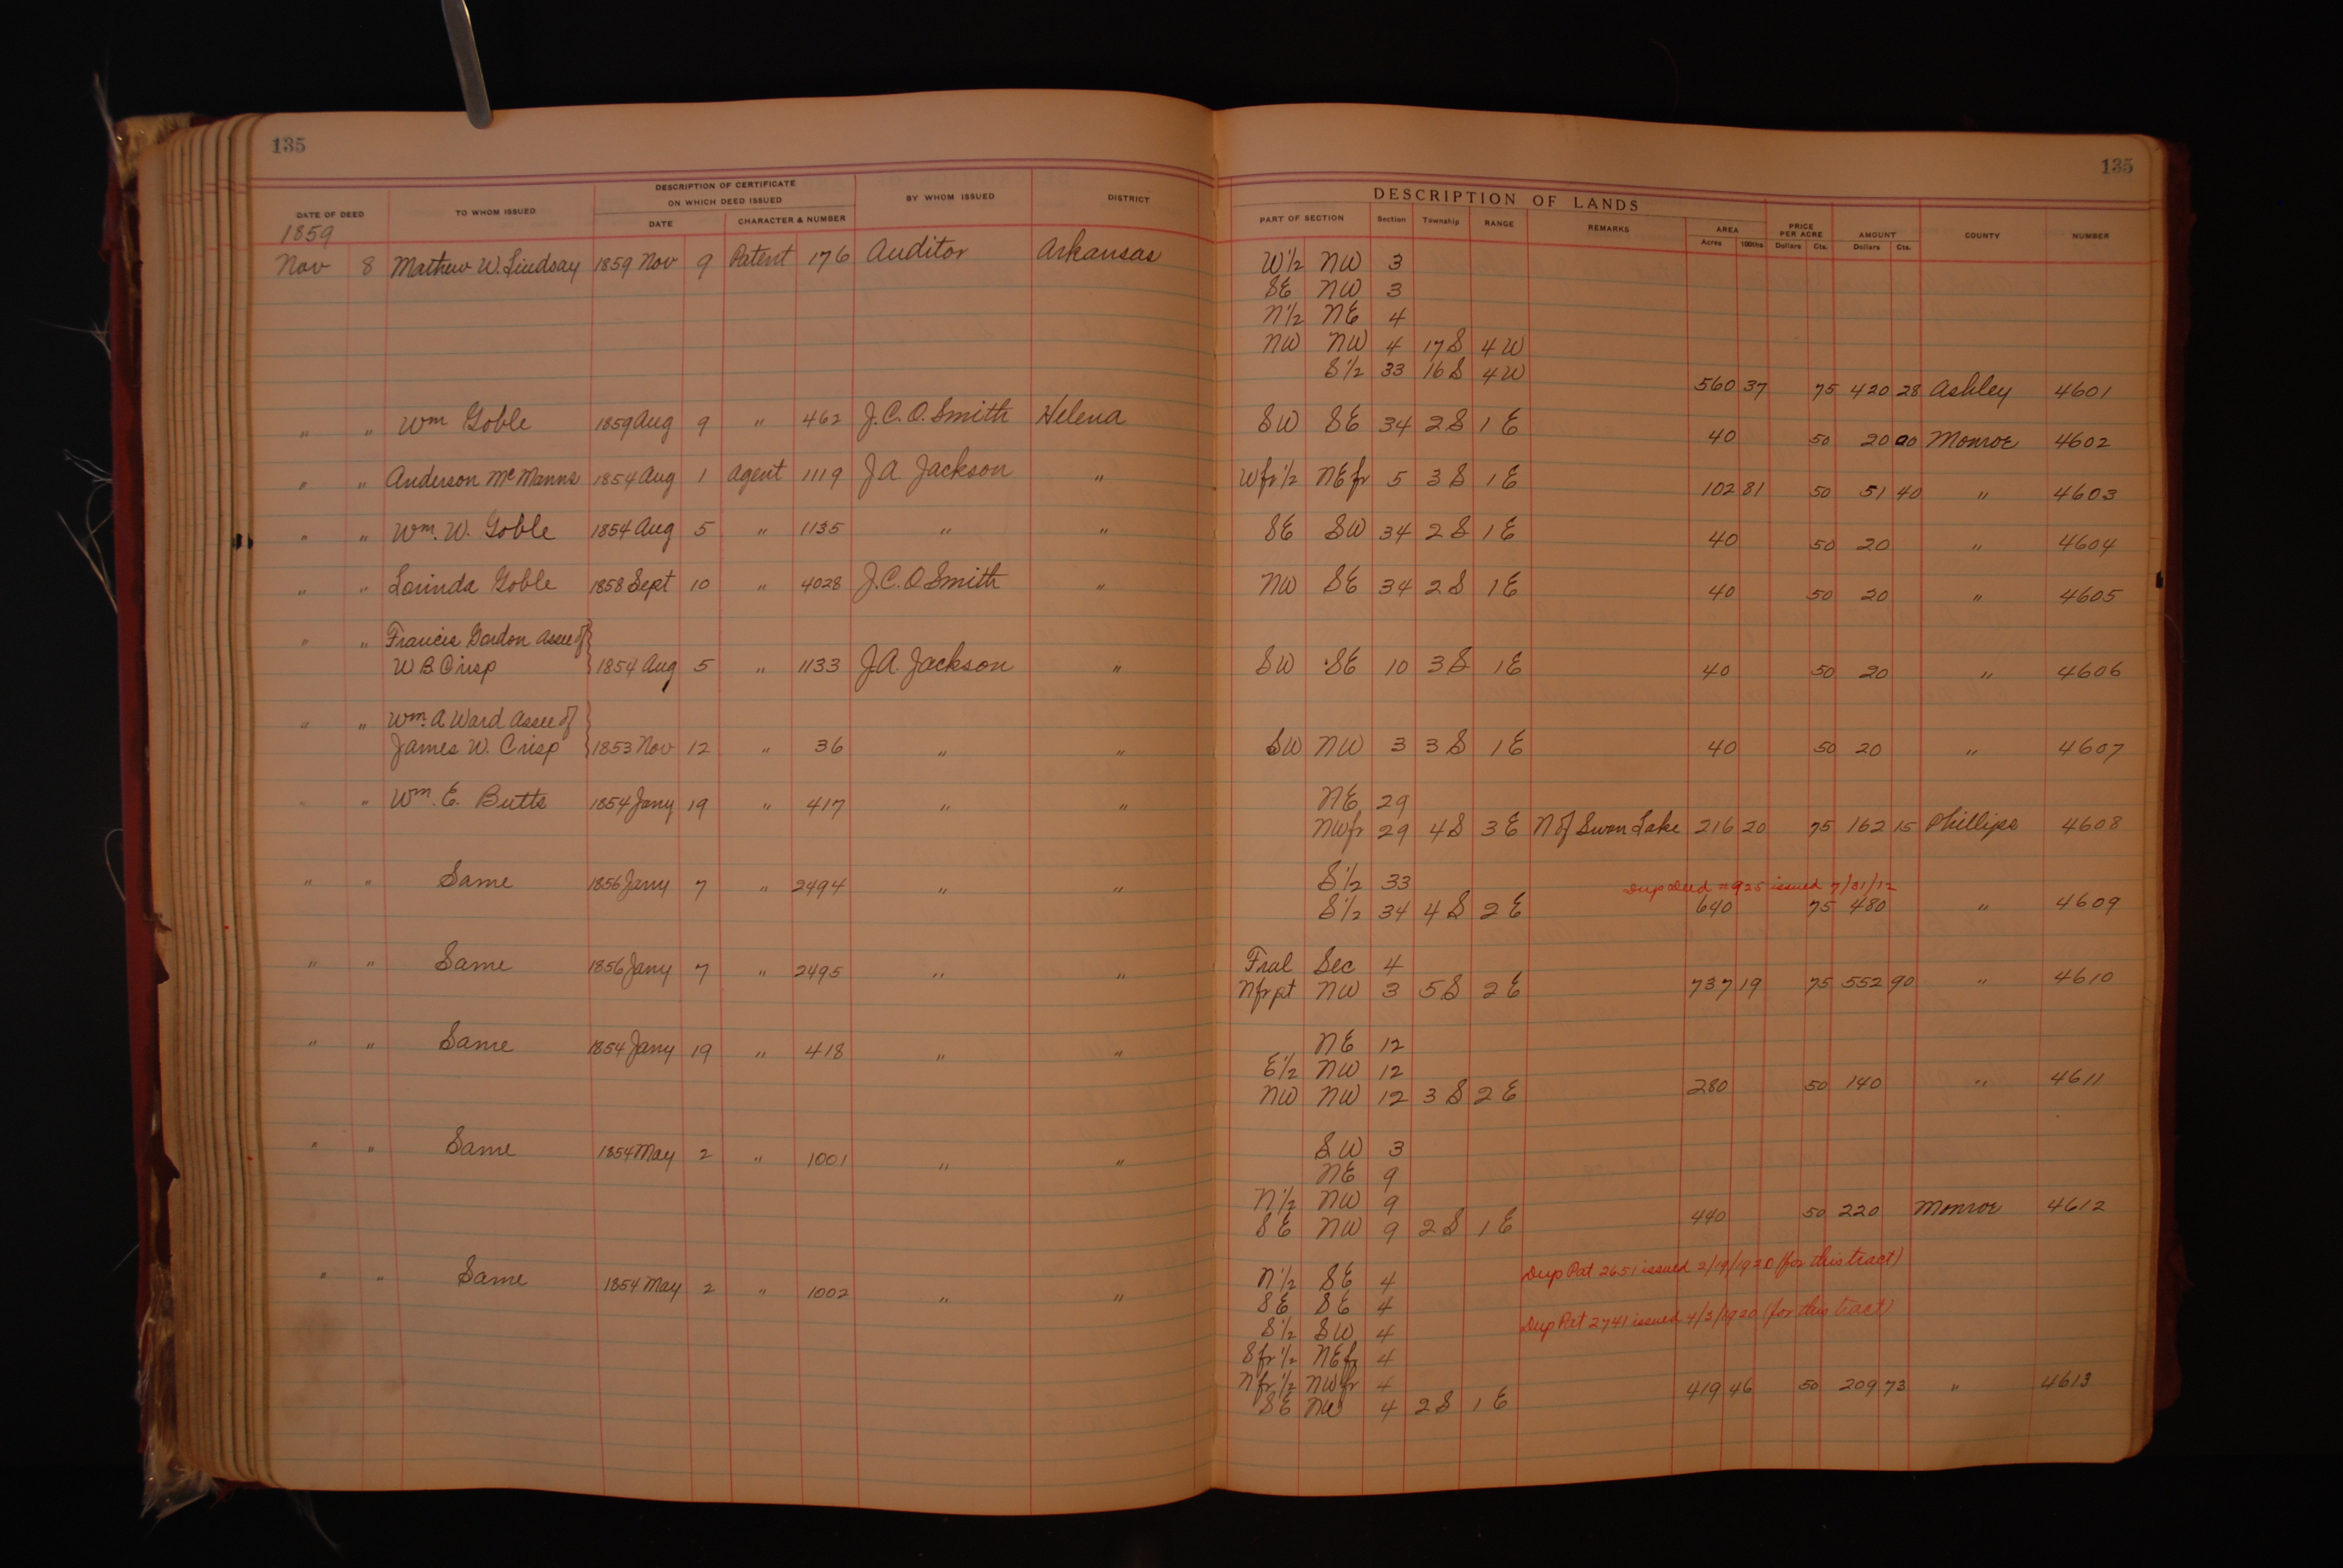 135 135
DESCRIPTION OF LANDS
DATE OF DEED TO WHOM ISSUED DESCRIPTION OF CERTIFICATE ON WHICH DEED ISSUED DATE CHARACTER & NUMBER BY WHOM ISSUED DISTRICT PART OF SECTION Section Township RANGE REMARKS AREA Acres 100ths PRICE PER ACRE Dollars Cts. AMOUNT Dollars Cts. COUNTY NUMBER
1859
Nov 8 Mathew W. Lindsay 1859 Nov 9 Patent 176 Auditor Arkansas W 1/2 NW 3
SE NW 3
N 1/2 NE 4
NW NW 4 17 S 4 W
S 1/2 33 16 S 4 W 560 37 75 420 28 Ashley 4601
" " Wm Goble 1859 Aug 9 " 462 J.C.O. Smith Helena SW SE 34 2 S 1 E 40 50 20 00 Monroe 4602
" " Anderson McManns 1854 Aug 1 agent 1119 J A Jackson " W fr 1/2 NE fr 5 3 S 1 E 102 81 50 51 40 " 4603
" " Wm. W. Goble 1854 Aug 5 " 1135 " " SE SW 34 2 S 1 E 40 50 20 " 4604
" " Lorinda Goble 1858 Sept 10 " 4028 J.C.O. Smith " NW SE 34 2 S 1 E 40 50 20 " 4605
" " Francis Gordon Assee of
W B Crisp 1854 Aug 5 " 1133 J.A. Jackson " SW SE 10 3 S 1 E 40 50 20 " 4606
" " Wm. A Ward Assee of
James W. Crisp 1853 Nov 12 " 36 " " SW NW 3 3 S 1 E 40 50 20 " 4607
" " Wm. E. Butts 1854 Jany 19 " 417 " " NE 29
NW fr 29 4 S 3 E N of Swan Lake 216 20 75 162 15 Phillips 4608
" " Same 1856 Jany 7 " 2494 " " S 1/2 33 Dup Deed #925 issued 7/31/12
S 1/2 34 4 S 2 E 640 75 480 " 4609
" " Same 1856 Jany 7 " 2495 " " Fral Sec 4
N fr pt NW 3 5 S 2 E 737 19 75 552 90 " 4610
" " Same 1854 Jany 19 " 418 " " NE 12
E 1/2 NW 12
NW NW 12 3 S 2 E 280 50 140 " 4611
" " Same 1854 May 2 " 1001 " " SW 3
NE 9
N 1/2 NW 9
SE NW 9 2 S 1 E 440 50 220 Monroe 4612
" " Same 1854 May 2 " 1002 " " N 1/2 SE 4 Dup Pat 2651 issued 2/19/1920 (for this tract)
SE SE 4
S 1/2 SW 4 Dup Pat 2741 issued 4/3/1920 (for this tract)
S fr 1/2 NE fr 4
N fr 1/2 NW fr 4
SE NW 4 2 S 1 E 419 46 50 209 73 " 4613